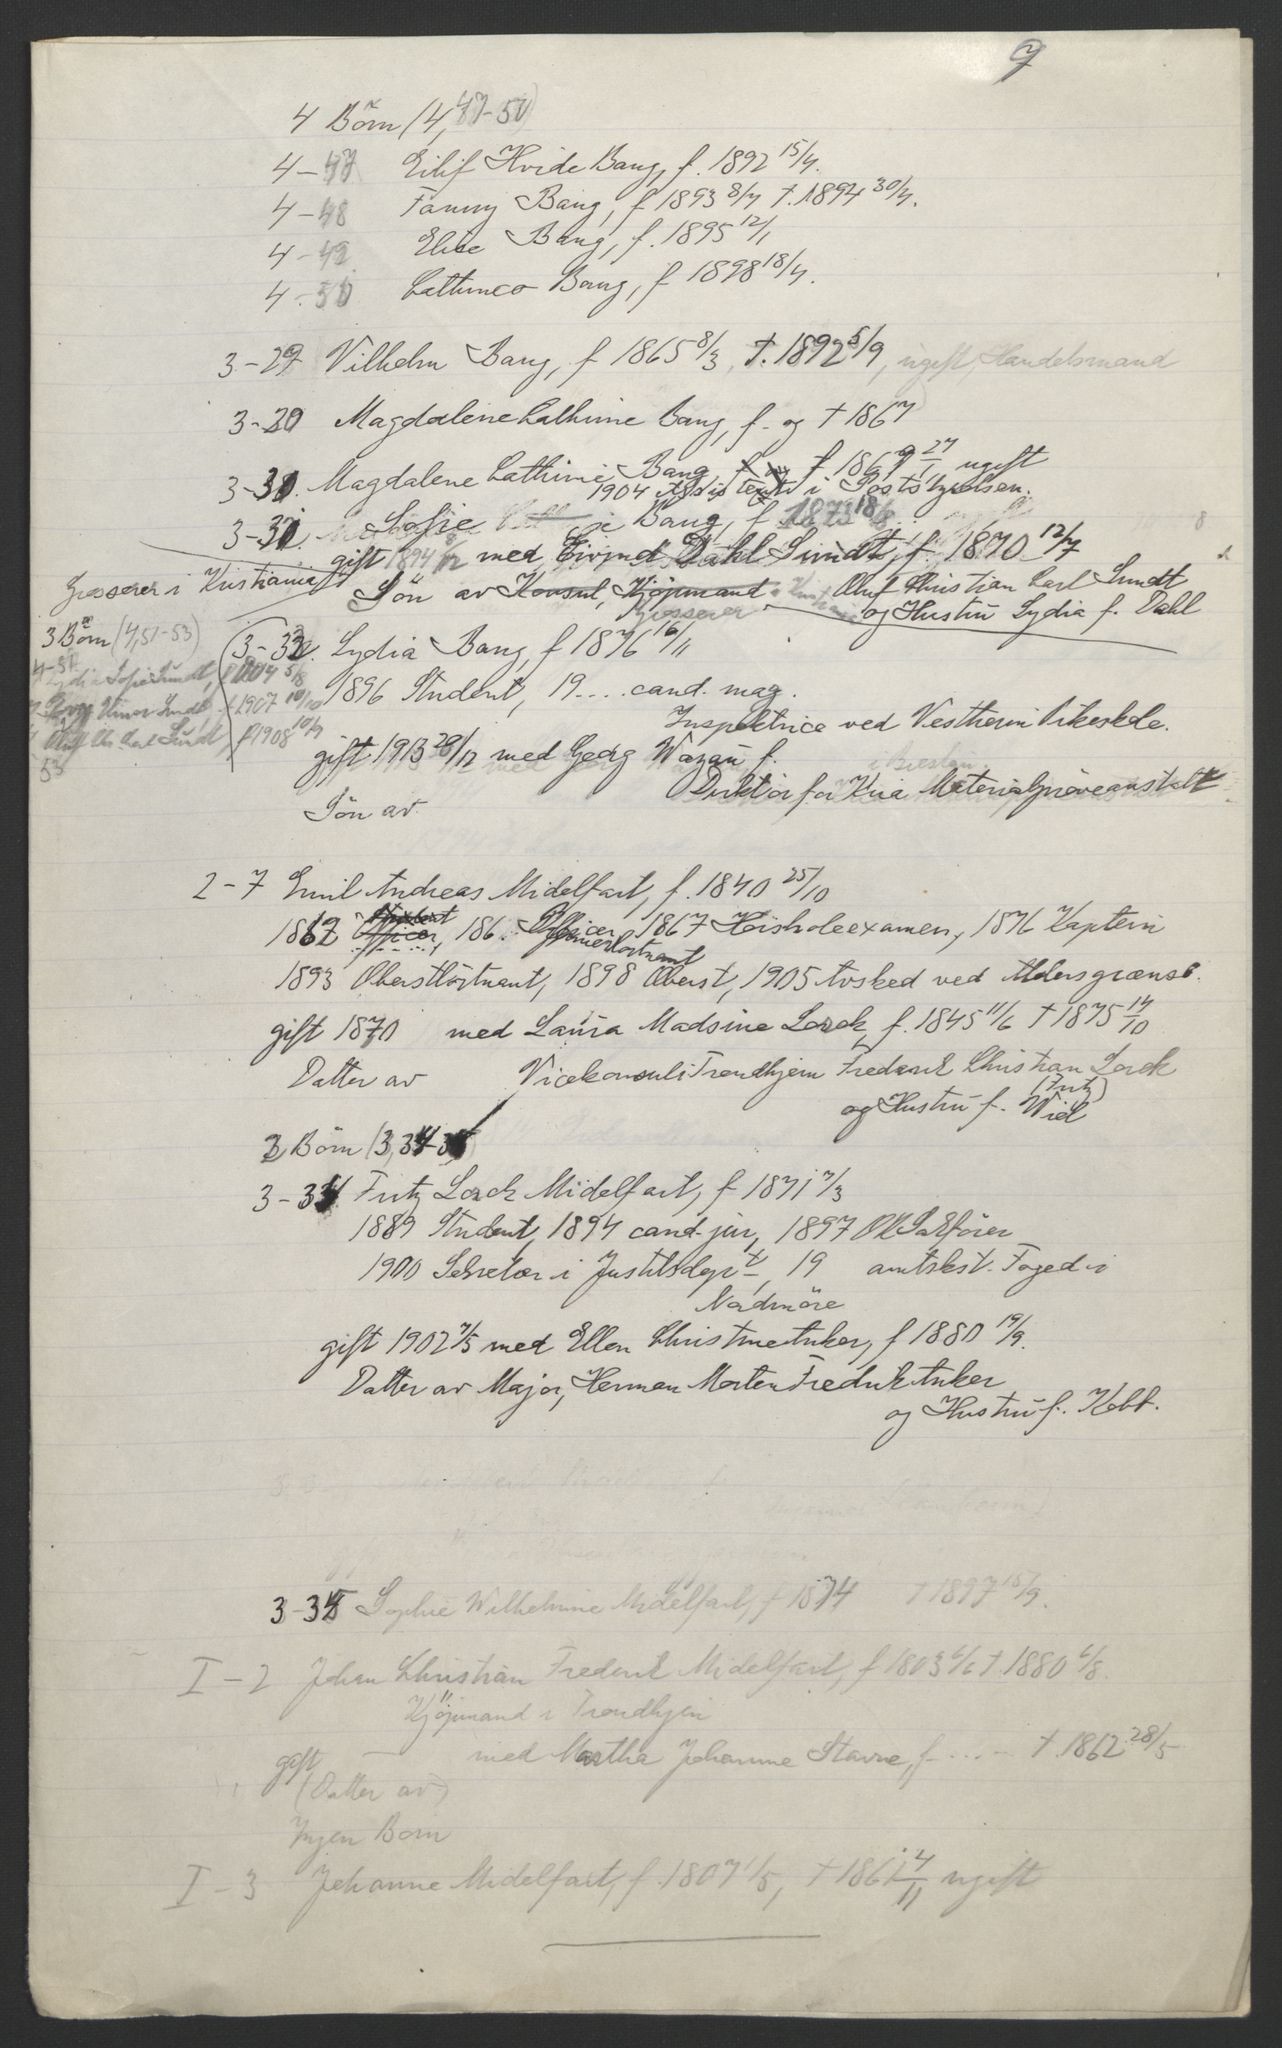 7
4 Börn (4, 47-50)
4-47 Eilif Hvide Bang, f. 1892 15/4.
4-48 Fanny Bang, f 1893 8/7 †. 1894 30/4.
4-49 Elise Bang, f. 1895 12/1
4-50 Bang, f 1898 18/4.
3-29 Vilhelm Bang, f 1865 8/3, †. 1892 5/9, ugift, Handelsmand
3-30 Magdalene Cathrine Bang, f. og † 1867
3-31. Magdalene Cathrine Bang, f 1869 27/1 ugift
1904 Assistent i Poststyrelsen.
3-32. Sofie Bang, f 1873 18/8
gift 1894 8/12 med Eivind Dahl Sundt, f. 1870 12/7
Grosserer i Kristiania
Sön av Konsul, Kjöpmand Oluf Christian Carl Sundt
Grosserer og Hustru Lydia f. Dahl
3 Börn (4, 51-53)
4-51 Lydia Sofie Sundt, f 1904 5/8
f 1907 10/10
Oluf Chr. Carl Sundt, f 1908 10/9
53
3-33. Lydia Bang, f 1876 16/11
1896 Student, 19.... cand. mag.
Inspektrice ved Vestheim Pikeskole.
gift 1913 28/12 med Georg Wazau f.
i Breslau
Direktör for Kria Materialpröveanstalt
Sön av
2-7 Emil Andreas Midelfart, f. 1840 25/10
1862 Officer, 186. Officer, 1867 Höiskoleexamen, 1876 Kaptein
Premierlöitnant
1893 Oberstlöitnant, 1898 Oberst, 1905 Avsked ved Aldersgrænse.
gift 1870 med Laura Madsine Lorck, f. 1845 11/6 † 1875 14/10
Datter av Vicekonsul i Trondhjem Frederik Christian Lorck
(Fritz)
og Hustru f. Wiel
2 Börn (3, 34-35)
3-34 Fritz Lorck Midelfart, f 1871 7/3
1889 Student, 1894 cand. jur, 1897 ORSakförer
1900 Sekretær i Justitsdept, 19 amtskst. Foged i
Nordmöre
gift 1902 7/5 med Ellen Christine Anker, f 1880 19/9.
Datter av Major, Herman Morten Fredrik Anker
og Hustru f. Kobb.
3-35 Sophie Wilhelmine Midelfart, f 1874 † 1897 18/9.
I-2 Johan Christian Frederik Midelfart, f 1803 6/6 †. 1880 6/8.
Kjöpmand i Trondhjem
gift — med Martha Johanne Stavne, f. .... †. 1862 28/5
(Datter av)
Ingen Börn
I-3 Johanne Midelfart, f. 1807 1/5, † 1861 4/11 ugift